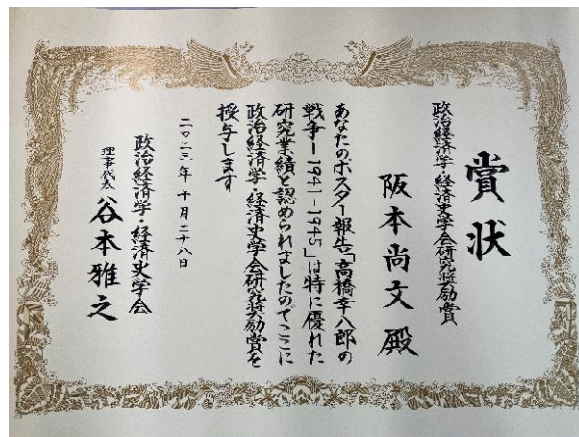 賞状
政治経済学・経済史学会研究奨励賞
阪本尚文殿
あなたのポスター報告「高橋幸八郎の
戦争ー1941-1945」は特に優れた
研究業績と認められましたのでここに
政治経済学・経済史学会研究奨励賞を
授与します
二〇二三年十月二十八日
政治経済学・経済史学会
理事代表 谷本雅之